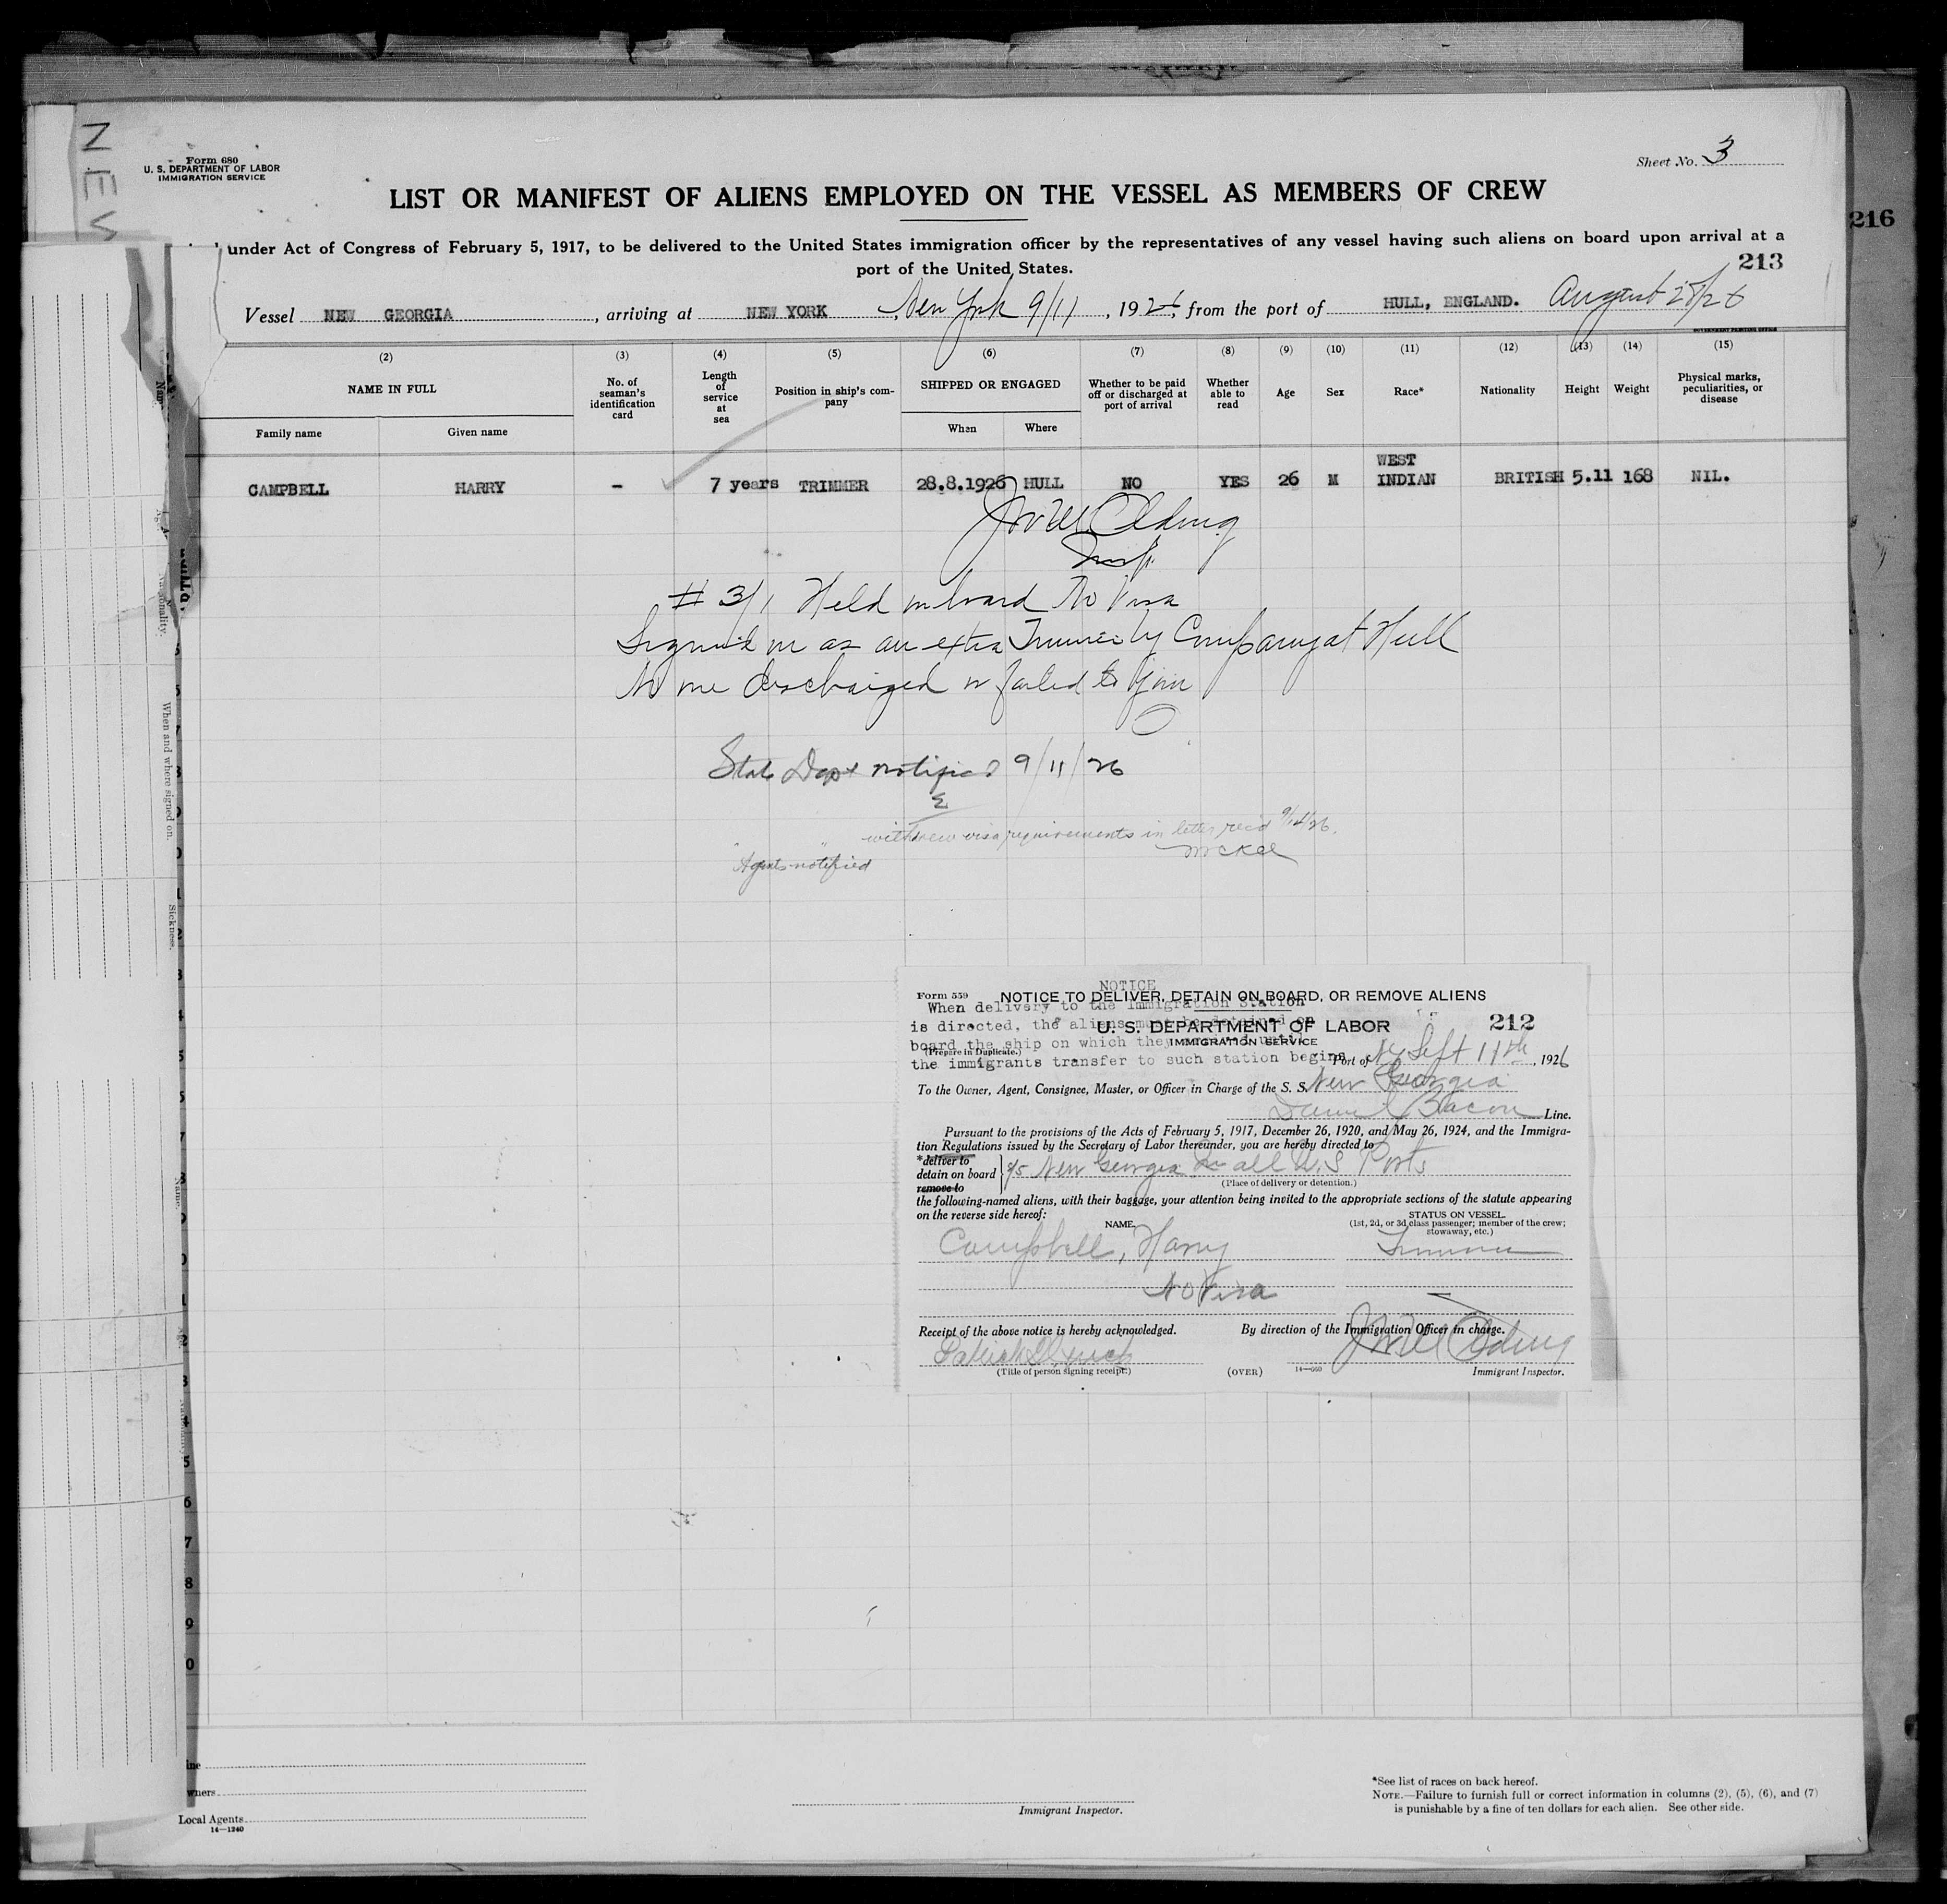 NEW
Form 680
U. S. DEPARTMENT OF LABOR
IMMIGRATION SERVICE
Sheet No. 3
LIST OR MANIFEST OF ALIENS EMPLOYED ON THE VESSEL AS MEMBERS OF CREW
216
under Act of Congress of February 5, 1917, to be delivered to the United States immigration officer by the representatives of any vessel having such aliens on board upon arrival at a
port of the United States.
213
Vessel NEW GEORGIA, arriving at NEW YORK, New York 9/11, 1926, from the port of HULL, ENGLAND. August 28/26
GOVERNMENT PRINTING OFFICE
(2) (3) (4) (5) (6) (7) (8) (9) (10) (11) (12) (13) (14) (15)
NAME IN FULL
Family name
Given name
No. of seaman's identification card
Length of service at sea
Position in ship's company
SHIPPED OR ENGAGED
When
Where
Whether to be paid off or discharged at port of arrival
Whether able to read
Age
Sex
Race*
Nationality
Height
Weight
Physical marks, peculiarities, or disease
CAMPBELL HARRY - 7 years TRIMMER 28.8.1926 HULL NO YES 26 M WEST INDIAN BRITISH 5.11 168 NIL.
Insp.
# 3/1 Held on board No Visa
Signed on as an extra Trimmer by Company at Hull
No one discharged or failed to join
State Dept notified 9/11/26
withdrew visa requirements in letter recd 9/14/26.
Agents notified
Form 559
NOTICE
NOTICE TO DELIVER, DETAIN ON BOARD, OR REMOVE ALIENS
When delivery to the Immigration Station
is directed, the aliens must be detained on
board the ship on which they arrived until
the immigrants transfer to such station begins
U. S. DEPARTMENT OF LABOR
IMMIGRATION SERVICE
212
(Prepare in Duplicate.)
Port of NY Sept 11th, 1926
To the Owner, Agent, Consignee, Master, or Officer in Charge of the S. S. New Georgia
Daniel Bacon Line.
Pursuant to the provisions of the Acts of February 5, 1917, December 26, 1920, and May 26, 1924, and the Immigra-
tion Regulations issued by the Secretary of Labor thereunder, you are hereby directed to
*deliver to
detain on board
remove to
s/s New Georgia in all U.S Ports
(Place of delivery or detention.)
the following-named aliens, with their baggage, your attention being invited to the appropriate sections of the statute appearing
on the reverse side hereof:
NAME.
STATUS ON VESSEL.
(1st, 2d, or 3d class passenger; member of the crew;
stowaway, etc.)
Campbell, Harry Trimmer
No Visa
Receipt of the above notice is hereby acknowledged.
By direction of the Immigration Officer in charge.
(Title of person signing receipt.)
(OVER)
14—660
Immigrant Inspector.
Local Agents
14—1240
Immigrant Inspector.
*See list of races on back hereof.
NOTE.—Failure to furnish full or correct information in columns (2), (5), (6), and (7)
is punishable by a fine of ten dollars for each alien. See other side.